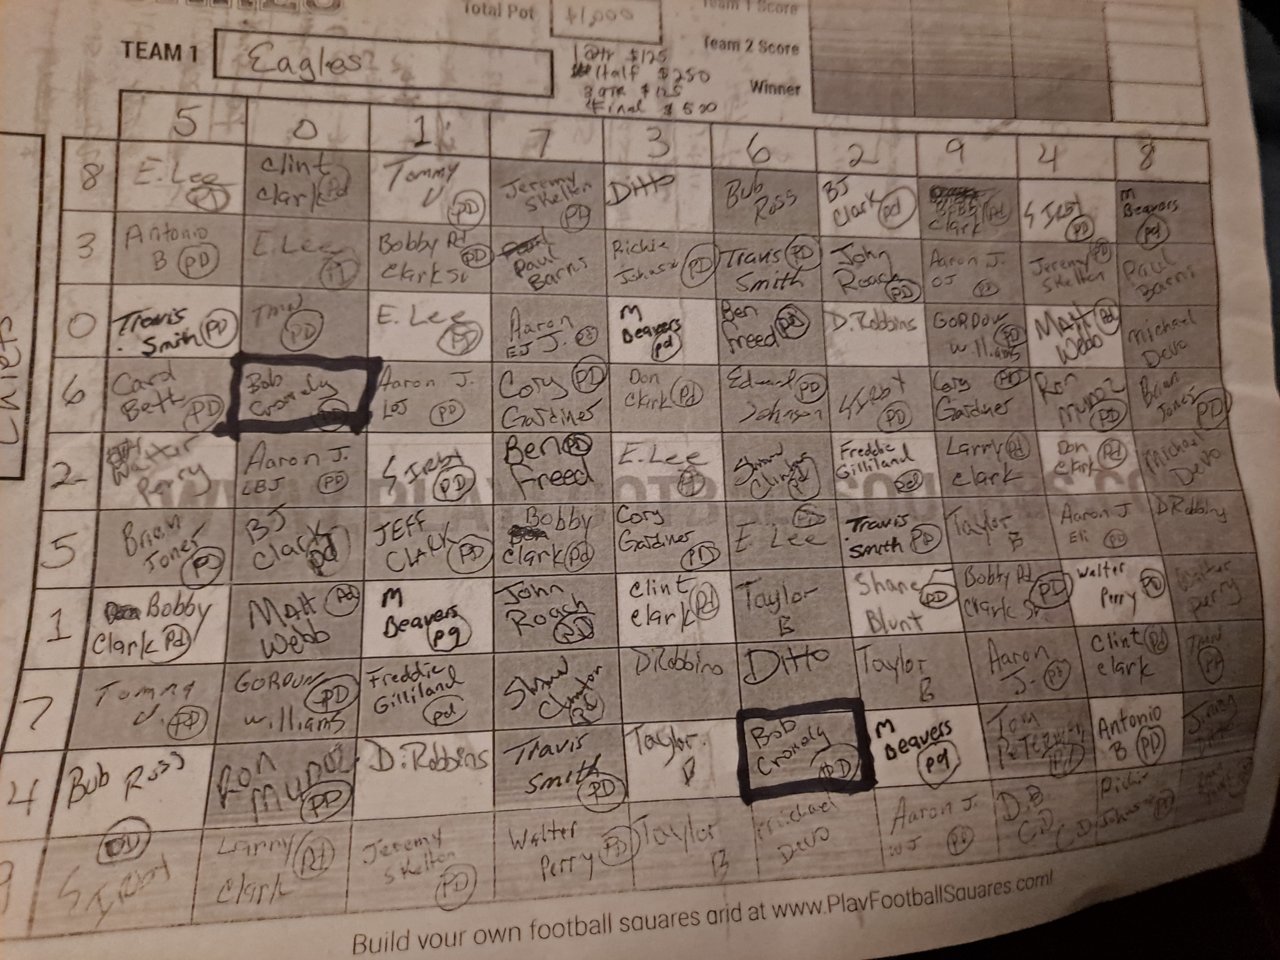 Total Pot $1,000
Team 1 Score
TEAM 1 Eagles
1 Qtr $125
Half $250
3 QTR $125
Final $500
Team 2 Score
Winner
Chiefs
5 0 1 7 3 6 2 9 4 8
8 E. Lee Clint Clark Pd Tommy V PD Jeremy Skelton PD Ditto Bub Ross BJ Clark pd Clark Pd S IRBY PD M Beavers pd
3 Antonio B PD E. Lee Bobby Clark Sr Pd PD Paul Barns Richie Johnson PD Travis Smith PD John Roach PD Aaron J. OJ Jeremy Skelton PD Paul Barns
0 Travis Smith PD PD E. Lee Aaron J. EJ M Beavers pd Ben Freed Pd D. Robbins GORDON Williams PD MATT Webb Pd Michael Devo
6 Card Bett PD Bob Aaron J. LBJ PD Cory Gardiner PD Don Clark Pd Edward Johnson PD S IRBY PD Cory Gardner PD Ron MUNOZ PD Brian Jones PD
2 Walter Perry Aaron J. LBJ PD S IRBY PD Ben Freed PD E. Lee Shawn Freddie Gilliland pd Larry Clark Pd Don Clark Pd Michael Devo
5 Brian Jones PD BJ Clark pd JEFF CLARK PD Bobby Clark Pd Cory Gardiner PD E Lee Travis Smith PD Taylor B Aaron J Eli PD D Robbins
1 Bobby Clark Pd MATT Webb Pd M Beavers pd John Roach PD Clint Clark Pd Taylor B Shane Blunt PD Bobby Clark Sr. Pd PD Walter Perry PD Walter Perry
7 Tommy V. PD GORDON Williams PD Freddie Gilliland pd Shawn D. Robbins Ditto Taylor B Aaron J. Clint Clark Pd
4 Bub Ross Ron MUNOZ PD D. Robbins Travis Smith PD Taylor B Bob PD M Beavers pd Tom PD Antonio B PD
9 S IRBY Larry Clark Pd Jeremy Skelton PD Walter Perry PD Taylor B Michael Devo Aaron J. WJ PD D.B C.D. Richie Johnson PD
Build your own football squares grid at www.PlayFootballSquares.com!